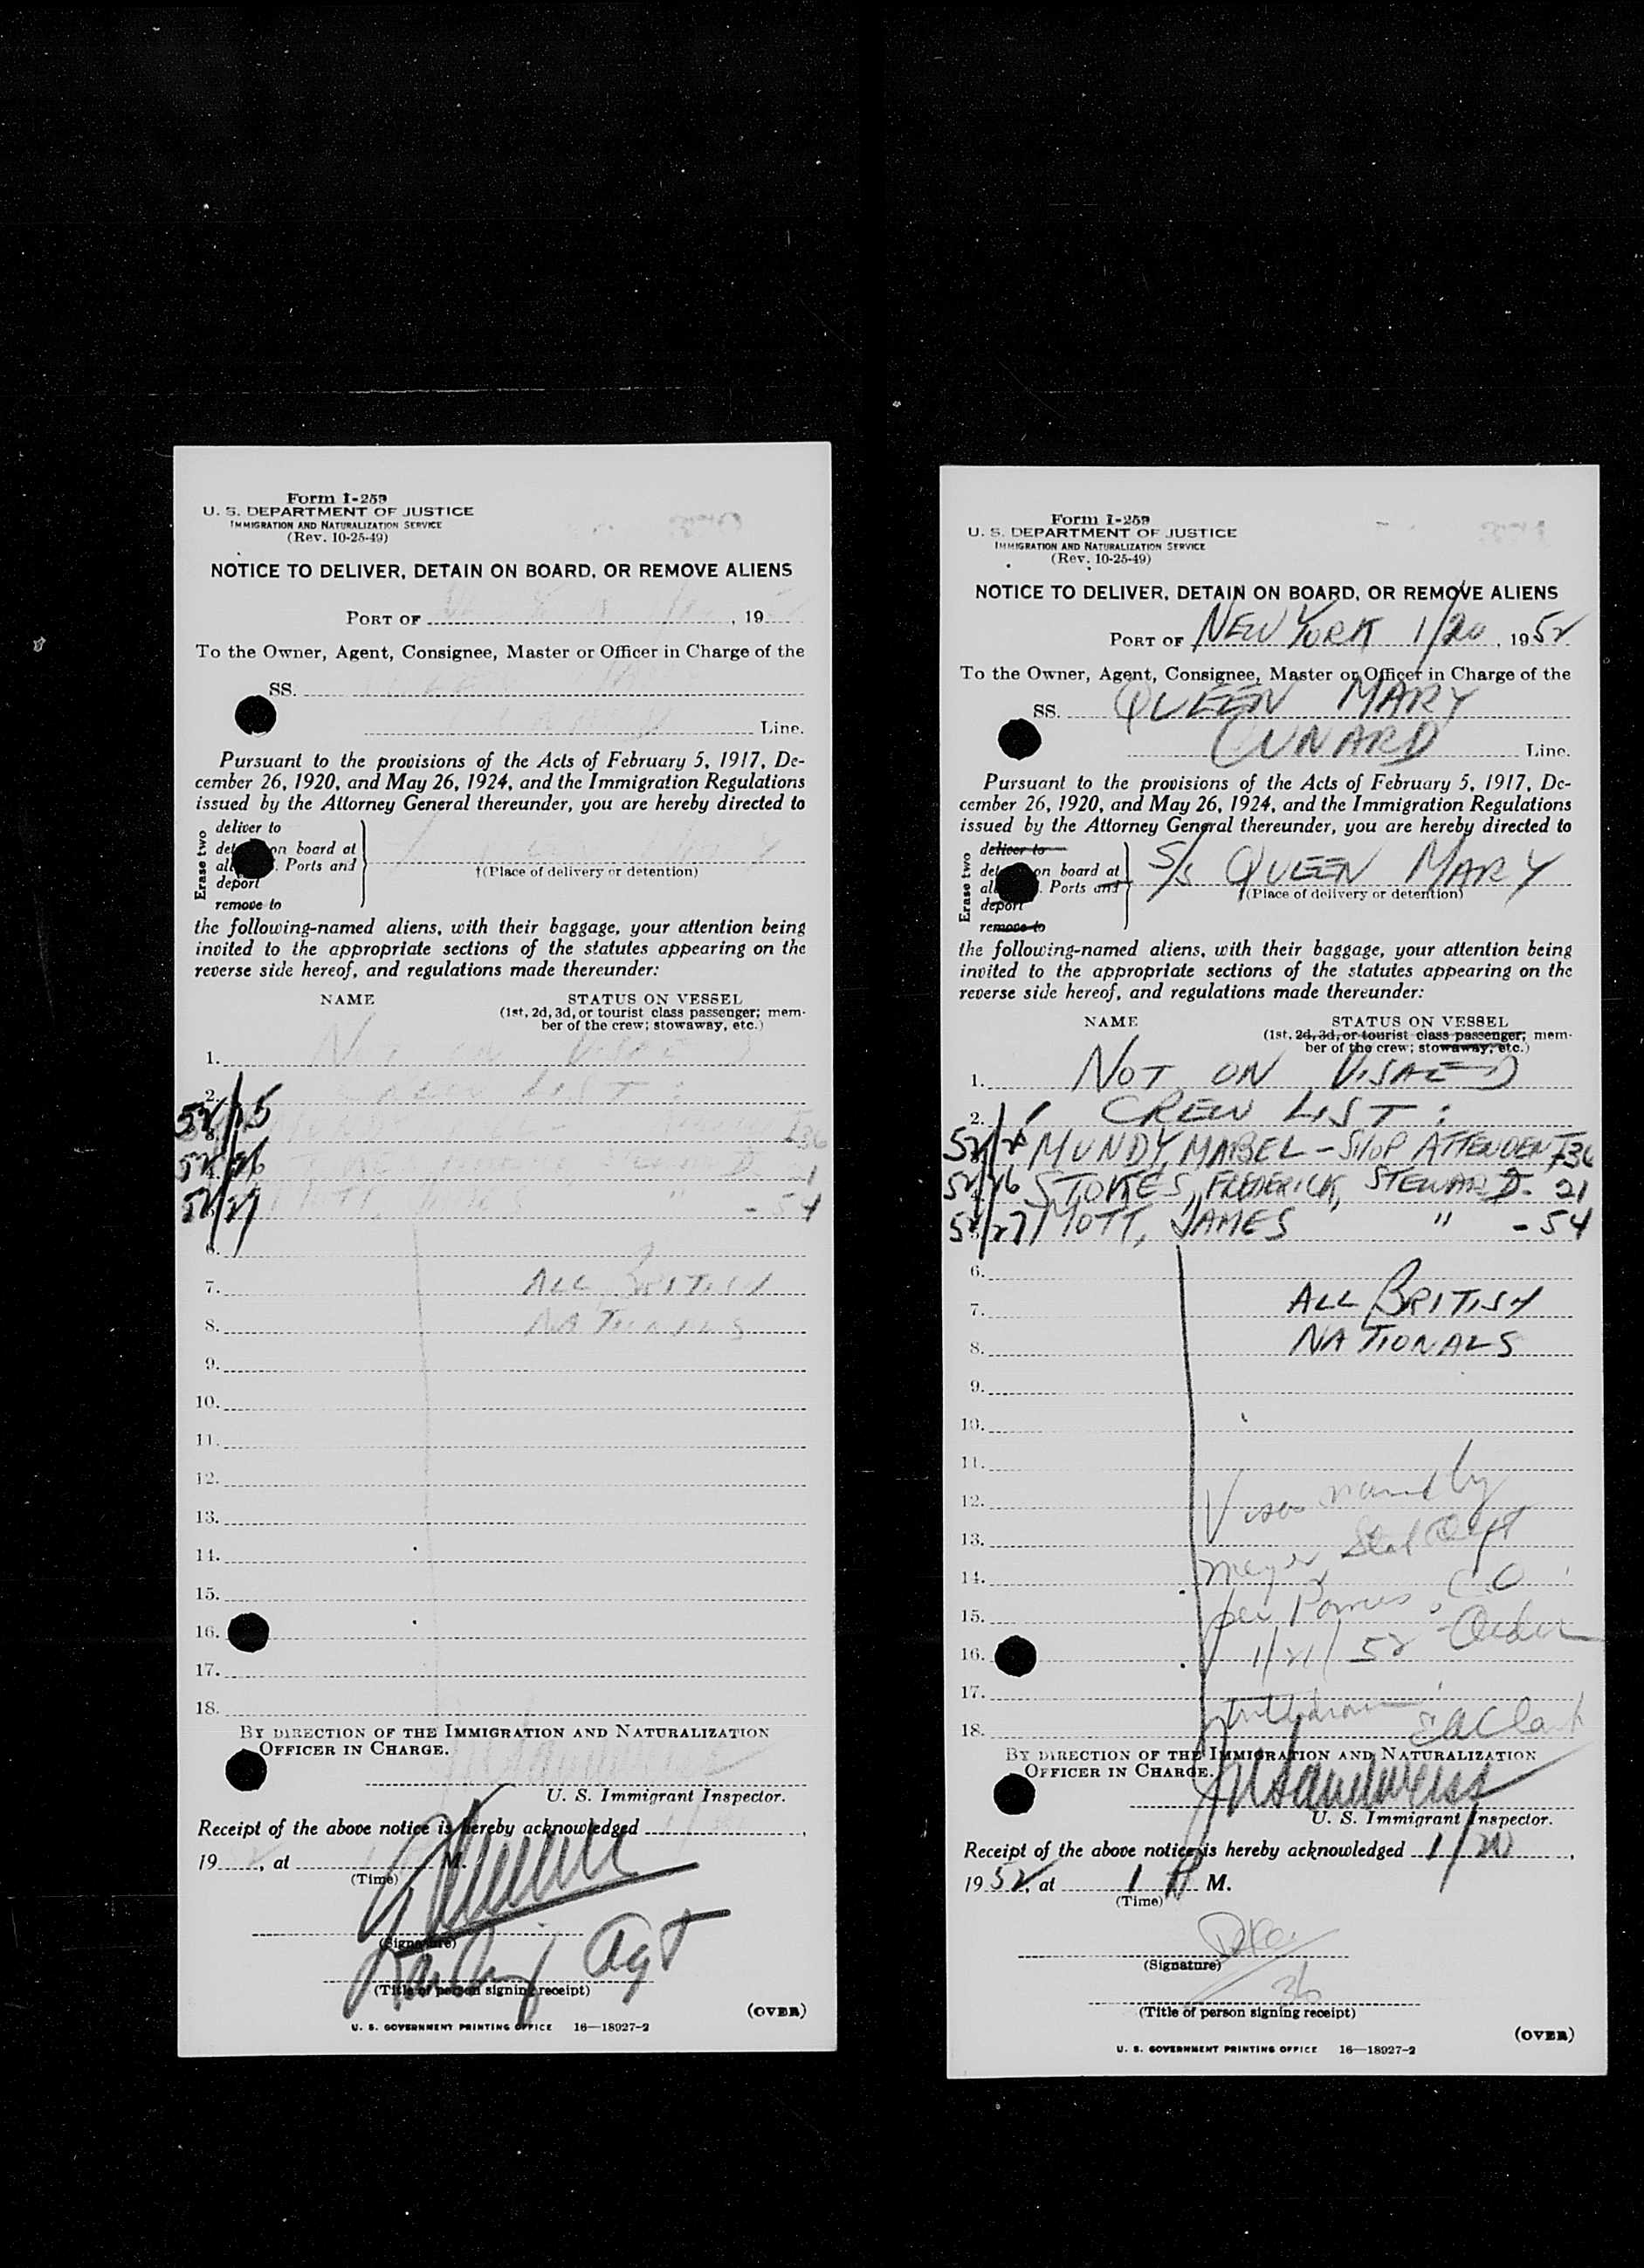 Form I-259
U. S. DEPARTMENT OF JUSTICE
IMMIGRATION AND NATURALIZATION SERVICE
(Rev. 10-25-49)
NOTICE TO DELIVER, DETAIN ON BOARD, OR REMOVE ALIENS
PORT OF , 19
To the Owner, Agent, Consignee, Master or Officer in Charge of the
SS.
Line.
Pursuant to the provisions of the Acts of February 5, 1917, De-
cember 26, 1920, and May 26, 1924, and the Immigration Regulations
issued by the Attorney General thereunder, you are hereby directed to
Erase two
deliver to
on board at
Ports and
deport
remove to
†(Place of delivery or detention)
the following-named aliens, with their baggage, your attention being
invited to the appropriate sections of the statutes appearing on the
reverse side hereof, and regulations made thereunder:
NAME STATUS ON VESSEL
(1st, 2d, 3d, or tourist class passenger; mem-
ber of the crew; stowaway, etc.)
1. NOT ON
2. LIST :
52/15
52/26
52/27 " - 54
6.
7. ALL BRITISH
8. NATIONALS
9.
10.
11.
12.
13.
14.
15.
16.
17.
18.
BY DIRECTION OF THE IMMIGRATION AND NATURALIZATION
OFFICER IN CHARGE.
U. S. Immigrant Inspector.
Receipt of the above notice is hereby acknowledged
19 , at M.
(Time)
(Signature)
Agt
(Title of person signing receipt)
(OVER)
U. S. GOVERNMENT PRINTING OFFICE 16—18927-2
Form I-259
U. S. DEPARTMENT OF JUSTICE
IMMIGRATION AND NATURALIZATION SERVICE
(Rev. 10-25-49)
NOTICE TO DELIVER, DETAIN ON BOARD, OR REMOVE ALIENS
PORT OF NEW YORK 1/20, 1952
To the Owner, Agent, Consignee, Master or Officer in Charge of the
SS. QUEEN MARY
CUNARD Line.
Pursuant to the provisions of the Acts of February 5, 1917, De-
cember 26, 1920, and May 26, 1924, and the Immigration Regulations
issued by the Attorney General thereunder, you are hereby directed to
Erase two
deliver to
on board at
Ports and
deport
remove to
S/S QUEEN MARY
(Place of delivery or detention)
the following-named aliens, with their baggage, your attention being
invited to the appropriate sections of the statutes appearing on the
reverse side hereof, and regulations made thereunder:
NAME STATUS ON VESSEL
(1st, 2d, 3d, or tourist class passenger; mem-
ber of the crew; stowaway, etc.)
1. NOT ON VISAED
2. CREW LIST :
MUNDY, MABEL - SHOP ATTENDENT 36
STOKES, FREDERICK, STEWARD - 21
52/27 MOTT, JAMES " - 54
6.
7. ALL BRITISH
8. NATIONALS
9.
10.
11.
12. Visas by
13. Stat Dept
14. Meyer C.O
15. per
16. 1/21/52 Order
17.
18. withdrawn EAClark
BY DIRECTION OF THE IMMIGRATION AND NATURALIZATION
OFFICER IN CHARGE.
U. S. Immigrant Inspector.
Receipt of the above notice is hereby acknowledged 1/20,
1952, at 1 P M.
(Time)
(Signature)
36
(Title of person signing receipt)
(OVER)
U. S. GOVERNMENT PRINTING OFFICE 16—18927-2